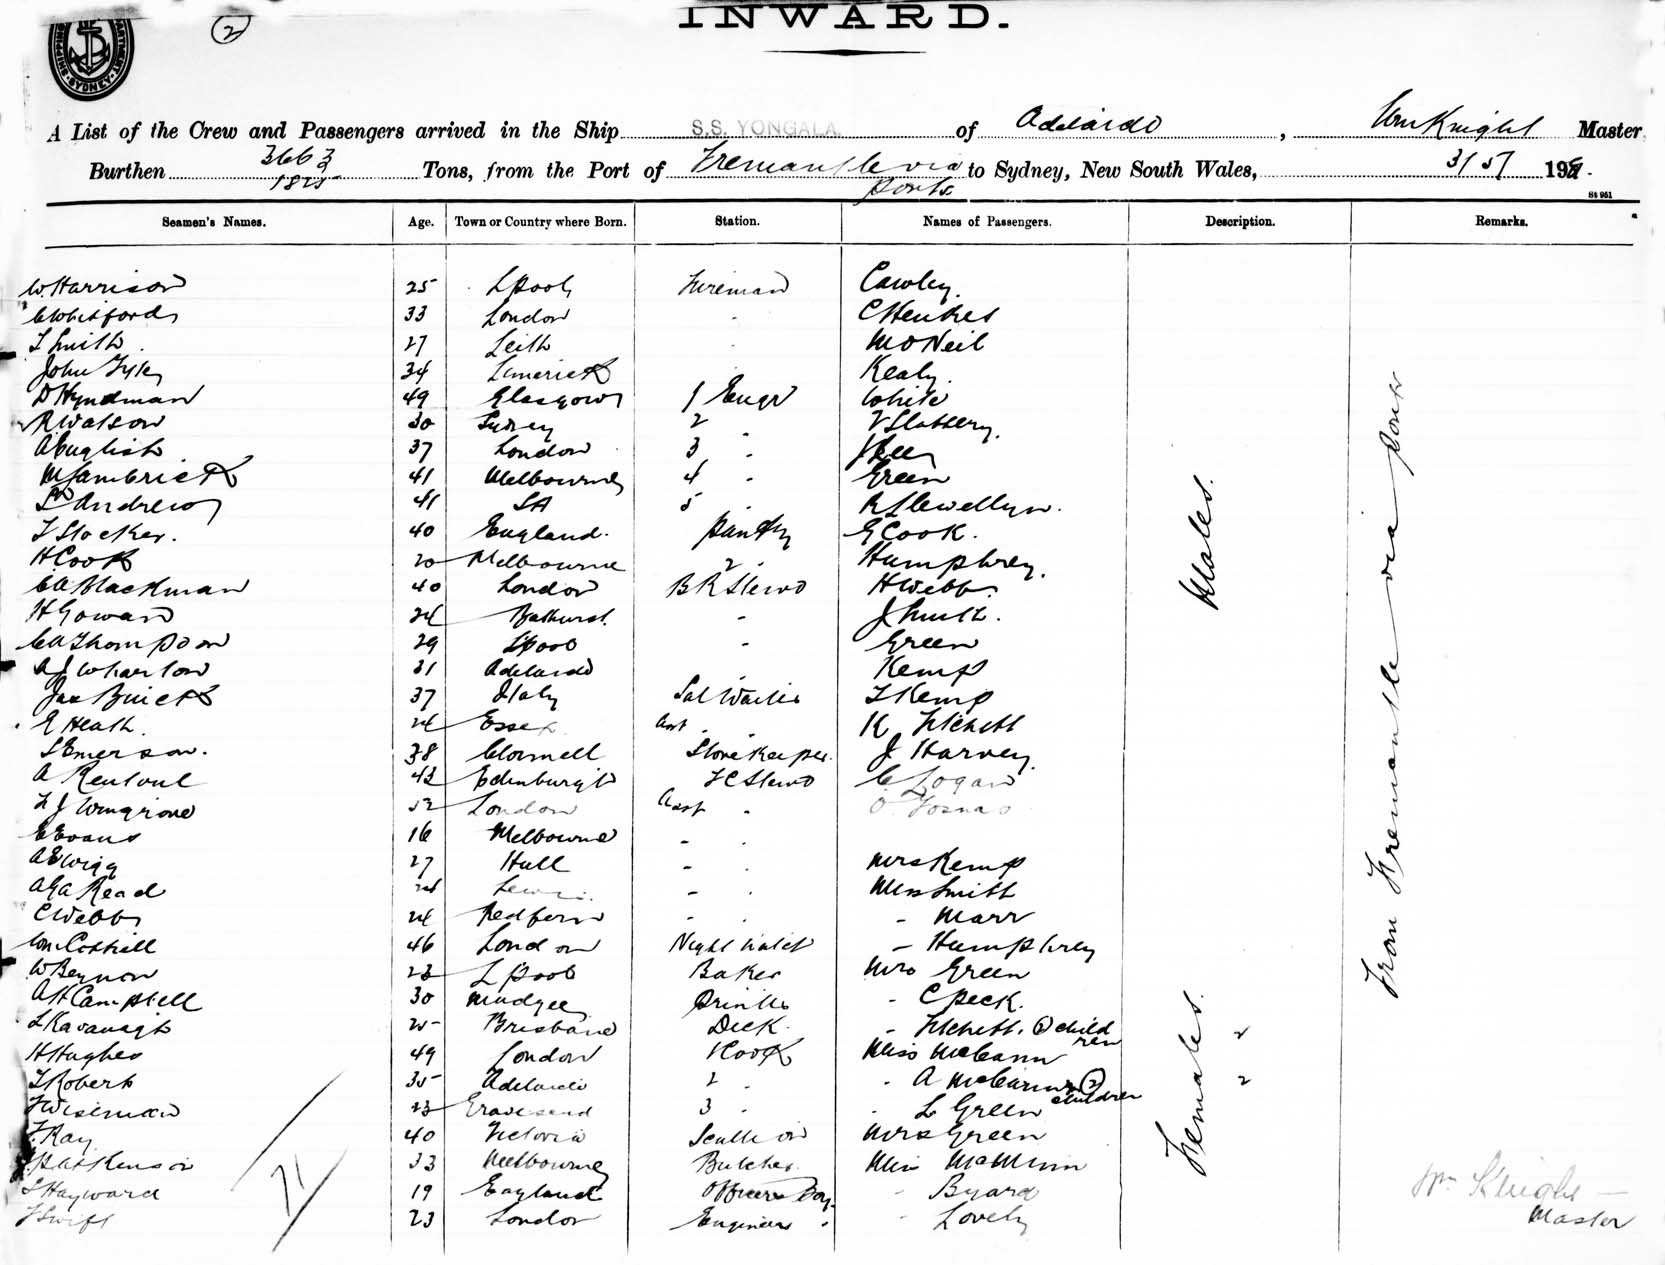 2
INWARD.
SYDNEY
A List of the Crew and Passengers arrived in the Ship S.S. YONGALA of Adelaide, Wm Knight Master
Burthen 3663 Tons, from the Port of Fremantle via to Sydney, New South Wales, 3/5/ 190
1825 ports
St 951
Seamen's Names. Age. Town or Country where Born. Station. Names of Passengers. Description. Remarks.
W. Harrison 25 L'pool Fireman Cawley
C Whitford 33 London - C Henkes
T Smith 27 Leith McNeil
John Fyfe 34 Limerick Kealy.
D Hyndman 49 Glasgow 1 Engr White
R Watson 30 Sydney 2 V Slattery.
A English 37 London 3 - J Keen
M Lambrick 41 Melbourne 4 - Green
Andrew 41 SA 5 - R Llewellyn.
T Stocker. 40 England. Pantry G Cook.
H Cook 20 Melbourne 2 - Humphrey.
C A Blackman 40 London B R Stewd H Webb.
H Gowan 24 Bathurst. - J Smith.
C A Thompson 29 L'pool - Green
A J Wharton 31 Adelaide - Kemp
Jas Buick 37 Italy Sal Waiter T Kemp
E Heath. 24 Essex Asst - K Fitchett
S Emerson. 38 Storekeeper. J Harvey.
A Rentoul 42 Edinburgh F C Stewd C Logan
F J Wingrove London Asst - O
C Evans 16 Melbourne - -
A E Wigg 27 Hull - - Mrs Kemp
A G A Read 24 - - Miss Smith
C Webb 24 Redfern - - - Marr
Wm Cottrell 46 London Night Watch - Humphrey
W Beynon 23 L'pool Baker Mrs Green
A H Campbell 30 Mudgee Printer - C Peck.
L Kavanagh 25 Brisbane Deck. - Fitchett. 2 children 2
H Hughes 49 London 1 Cook Miss McCann
T Roberts 35 Adelaide 2 - - A McCann 2 children 2
F Wiseman 23 Gravesend 3 - - L Green
F. Ray 40 Victoria Scullion Mrs Green
Parkinson 33 Melbourne Butcher. Miss McMinn
S Hayward 19 England Officers Boy - Byard
F Swift 23 London Engineers - - Lovely
Males.
Females.
From Fremantle via ports
71
Wm Knight
Master